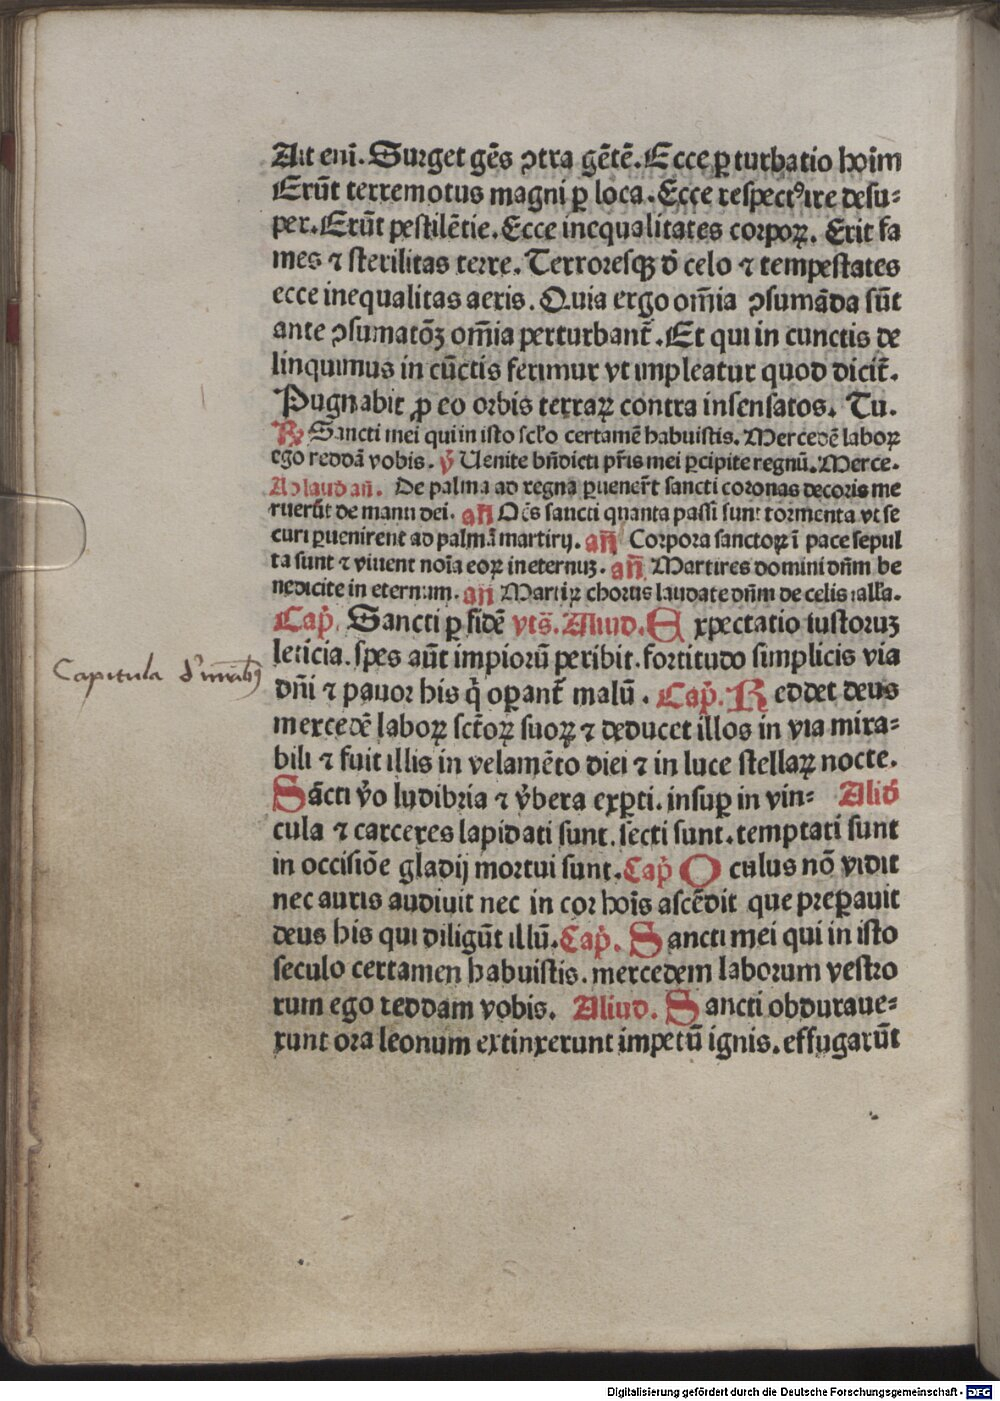 Ait enī. Surget gēs ꝯtra gētē. Ecce ꝑ turbatio hoīm
Erūt terremotus magni ꝑ loca. Ecce respectꝰ ire desu⸗
per. Erūt pestilētie. Ecce inequalitates corpoꝝ. Erit fa
mes ⁊ sterilitas terre. Terroresqꝫ d̄ celo ⁊ tempestates
ecce inequalitas aeris. Quia ergo om̄ia ꝯsumāda sūt
ante ꝯsumatōꝫ om̄ia perturbant᷑. Et qui in cunctis de
linquimus in cūctis ferimur vt impleatur quod dicit᷑.
Pugnabit ꝓ eo orbis terraꝝ contra insensatos. Tu.
℟ Sancti mei qui in isto sclo certamē habuistis. Mercedē laboꝝ
ego reddā vobis. ℣ Uenite bn̄dicti pr̄is mei ꝑcipite regnū. Merce.
Ad laud an̄. De palma ad regna ꝑuener̄t sancti coronas decoris me
ruerūt de manu dei. an̄ Oēs sancti quanta passi sunt tormenta vt se
curi ꝑuenirent ad palmā martirij. an̄ Corpora sanctoꝝ ī pace sepul
ta sunt ⁊ viuent noīa eoꝝ in eternuꝫ. an̄ Martires domini dn̄m be
nedicite in eternum. an̄ Martiꝝ chorus laudate dn̄m de celis alla.
Cap̄. Sancti ꝑ fidē vts̄. Aliud. Expectatio iustoruꝫ
leticia. spes aūt impiorū peribit. fortitudo simplicis via
Capitula
dn̄i ⁊ pauor his q̇ oꝑant᷑ malū. Cap̄. Reddet deus
mercedē laboꝝ sctōꝝ suoꝝ ⁊ deducet illos in via mira⸗
bili ⁊ fuit illis in velamēto diei ⁊ in luce stellaꝝ nocte.
Sācti v̄o ludibria ⁊ v̄bera exꝑti. insuꝑ in vin⸗ Aliud
cula ⁊ carceres lapidati sunt. secti sunt. temptati sunt
in occisiōe gladij mortui sunt. Cap̄ Oculus nō vidit
nec auris audiuit nec in cor hoīs ascēdit que preꝑauit
deus his qui diligūt illū. Cap̄. Sancti mei qui in isto
seculo certamen habuistis. mercedem laborum vestro
rum ego reddam vobis. Aliud. Sancti obduraue⸗
runt ora leonum extinxerunt impetū ignis. effugarūt
Digitalisierung gefördert durch die Deutsche Forschungsgemeinschaft - DFG